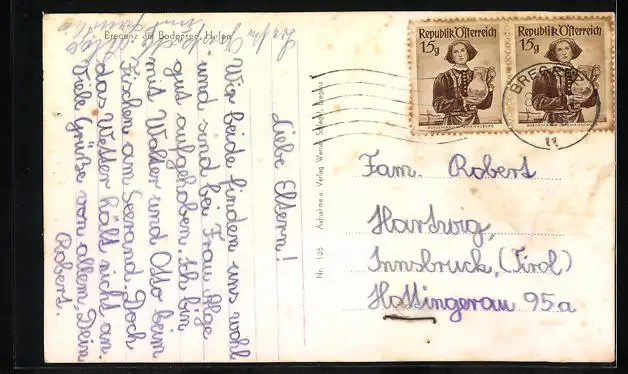 Bregenz am Bodensee, Hafen
Liebe Eltern!
Wir beide finden uns wohl
und sind bei Frau Alge
gut aufgehoben. Ich bin
mit Walter und Otto beim
Fischen am Seerand. Doch
das Wetter hält nicht an.
Viele Grüße von allem, Dein
Robert.
Nr. 105 Aufnahme u. Verlag Werner
Republik Österreich
15g
Republik Österreich
15g
BREGENZ
Fam. Robert
Hartwig,
Innsbruck, (Tirol)
Hottingerau 95a